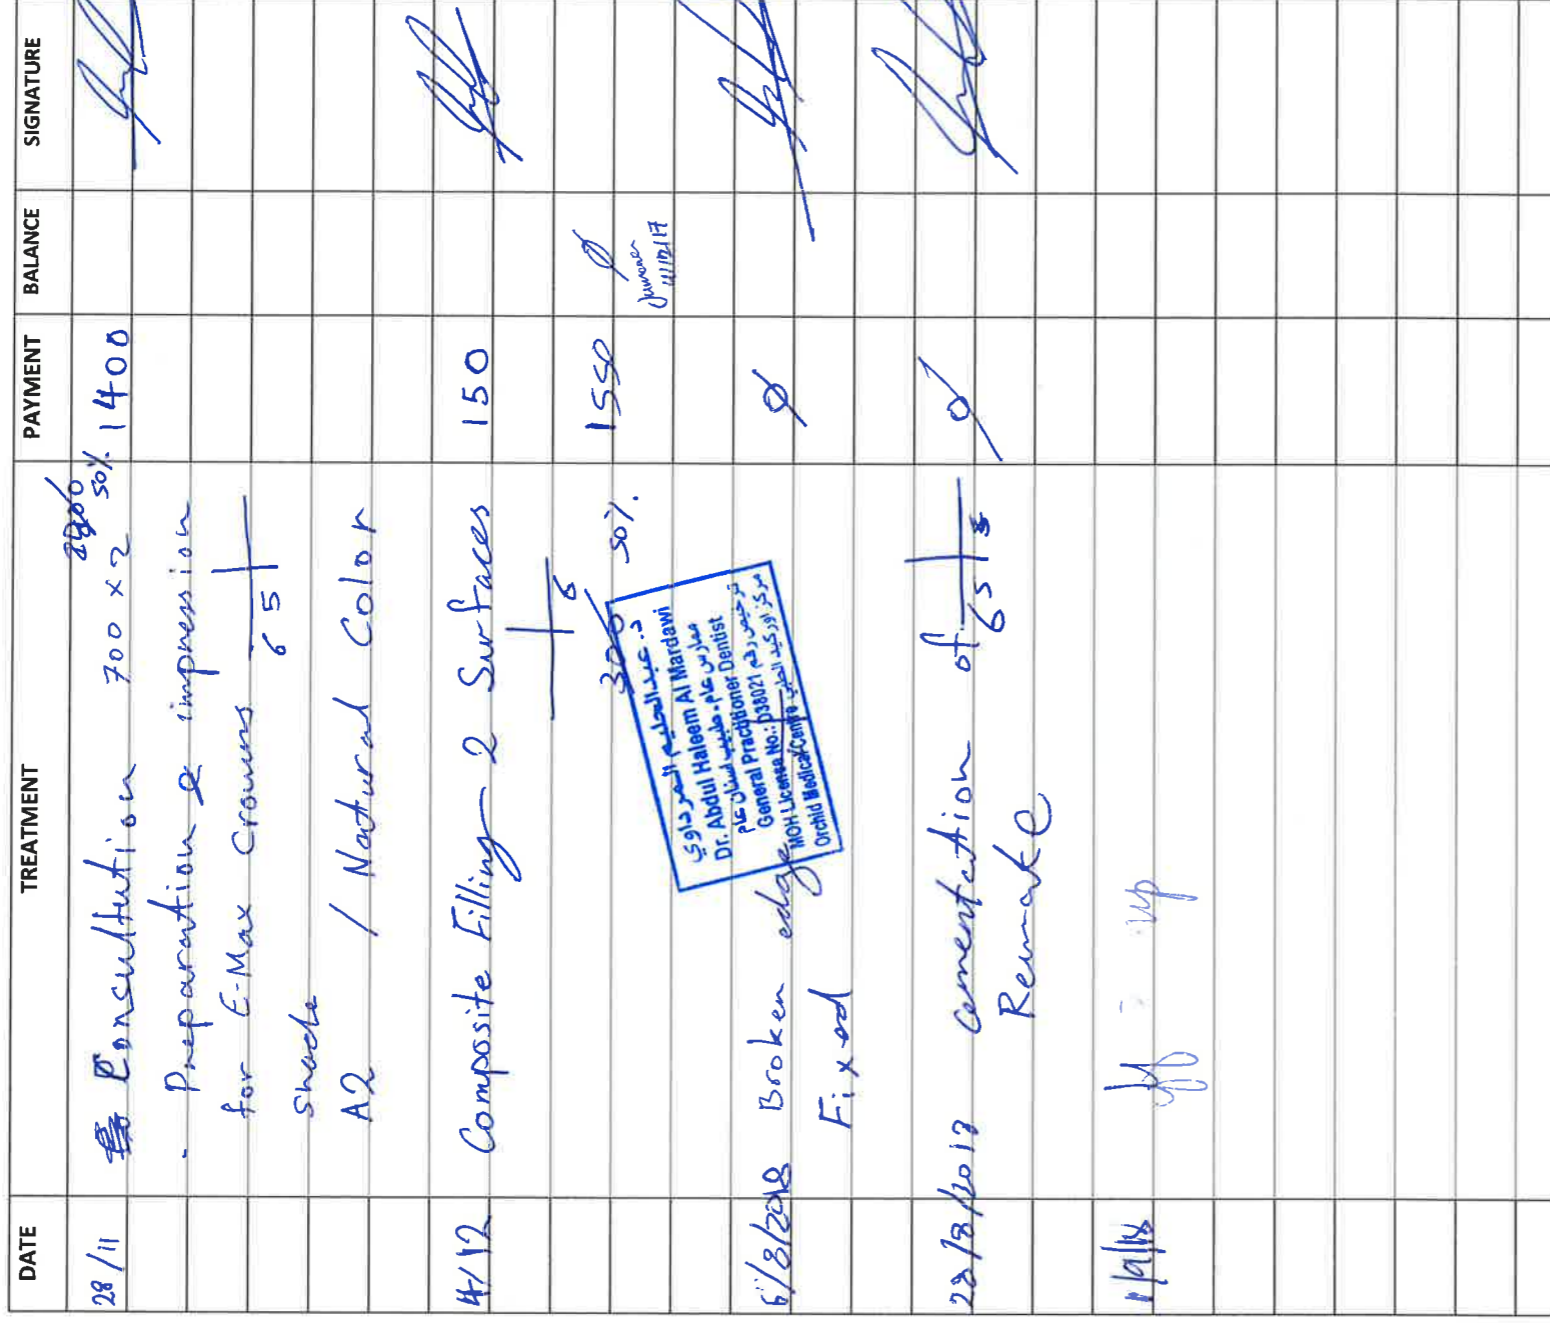 DATE TREATMENT PAYMENT BALANCE SIGNATURE
2800
28/11 Consultution 700 x 2 50% 1400
- Preparation & impression
for E-Max Crowns 6 5
shade
A2 / Natural Color
4/12 Composite Filling - 2 Surfaces 150
6
300 50% 1550 Ø
11/12/17
د. عبد الحليم المرداوي
Dr. Abdul Haleem Al Mardawi
ممارس عام - طبيب أسنان عام
General Practitioner Dentist
ترخيص رقم D38021
MOH License No.: D38021
مركز اوركيد الطبي
Orchid Medical Centre
6/8/2018 Broken edge Ø
Fixed
28/8/2018 cementation of 6 5 Ø
Remake
up